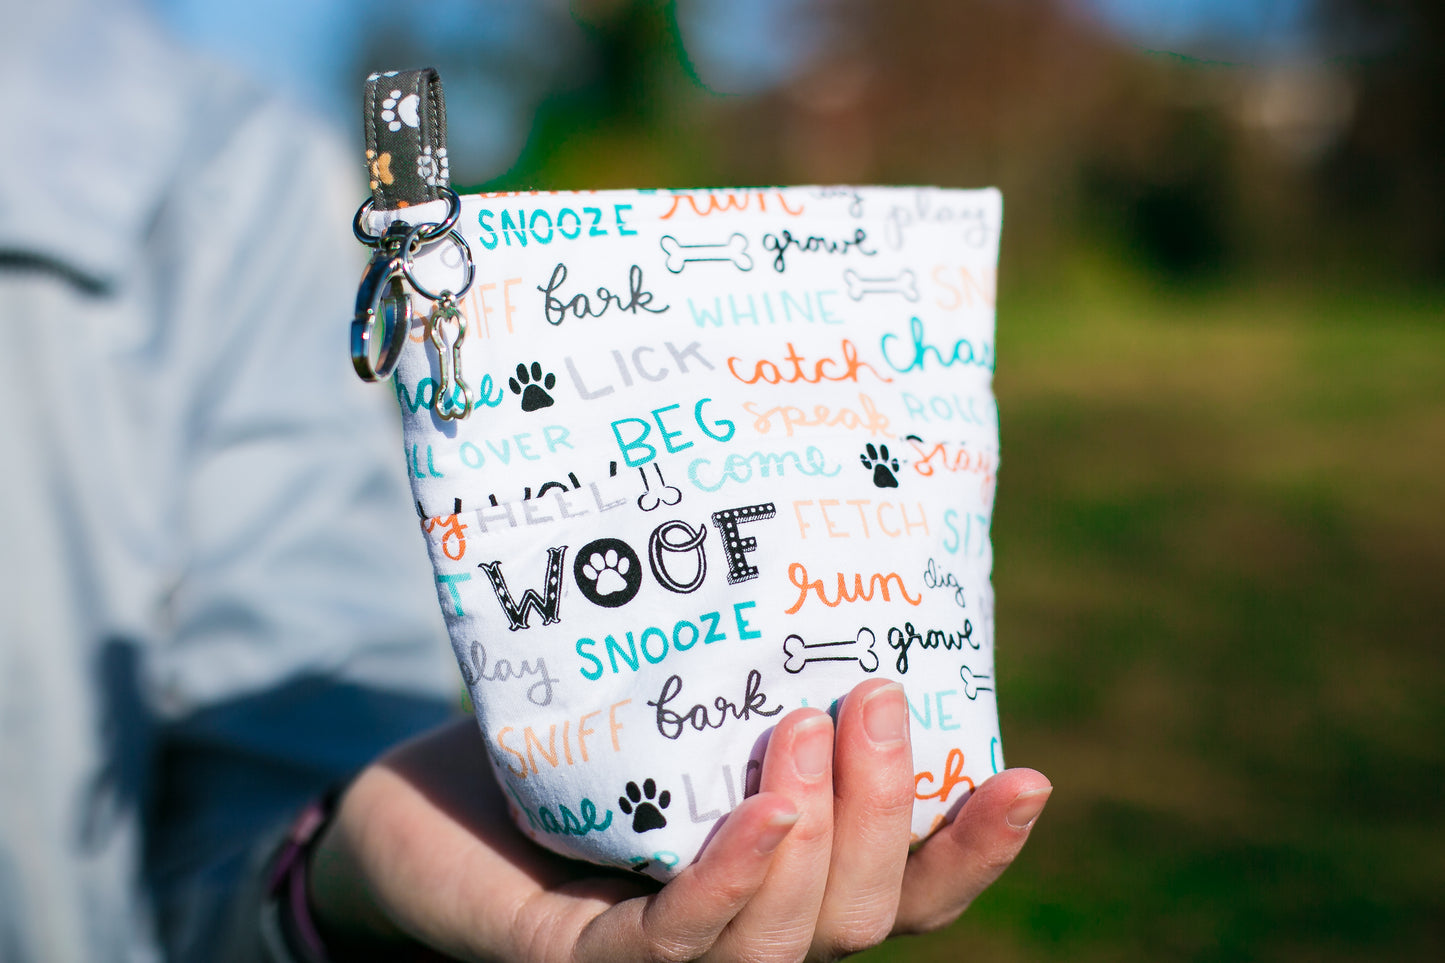 SNOOZE run dig play
growl
SNIFF bark WHINE SN
chase LICK catch chas
ROLL OVER BEG speak ROLL
come stay
HEEL
WOOF FETCH SIT
run dig
play SNOOZE growl
SNIFF bark WHINE
chase LICK catch